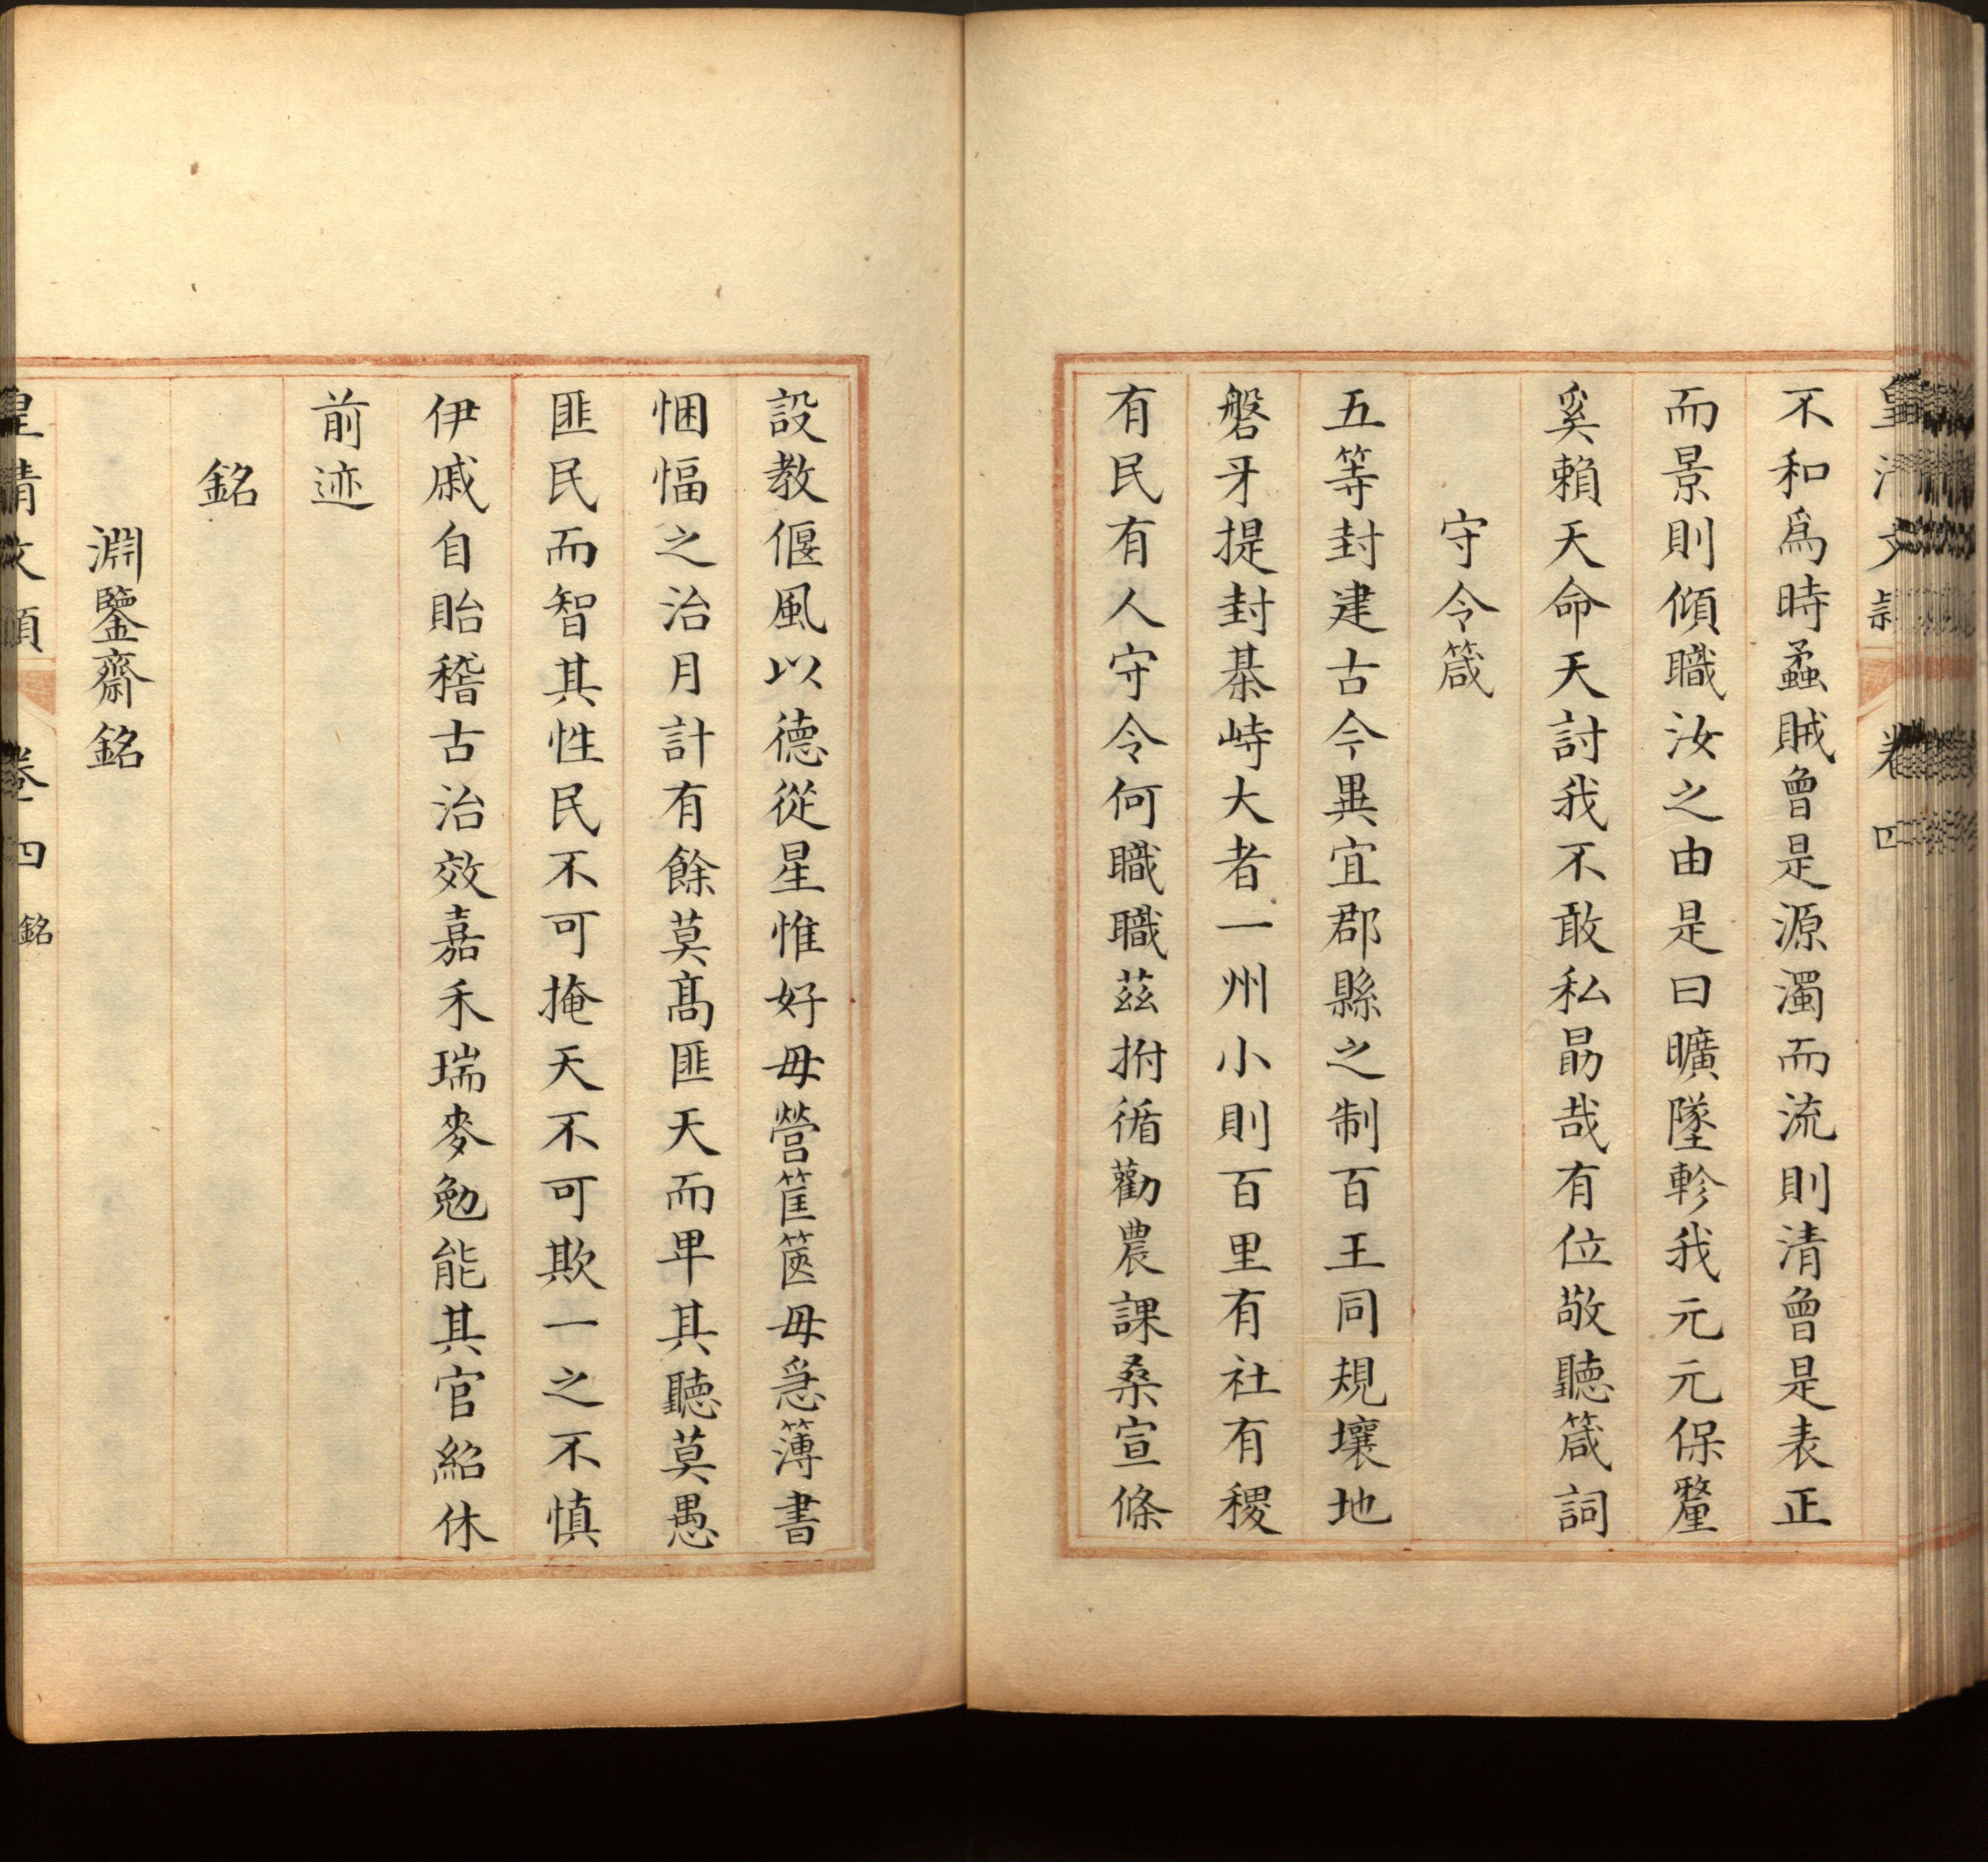 皇清文穎 卷四
不和爲時蟊賊曾是源濁而流則清曾是表正
而景則傾職汝之由是曰曠墜軫我元元保釐
奚賴天命天討我不敢私勗哉有位敬聽箴詞
守令箴
五等封建古今異宜郡縣之制百王同規壤地
磐牙提封棊峙大者一州小則百里有社有稷
有民有人守令何職職茲拊循勸農課桑宣條
設教偃風以德從星惟好毋營筐篋毋急簿書
悃愊之治月計有餘莫髙匪天而卑其聽莫愚
匪民而智其性民不可掩天不可欺一之不慎
伊戚自貽稽古治效嘉禾瑞麥勉能其官紹休
前迹
銘
淵鑒齋銘
皇清文穎 卷四 銘